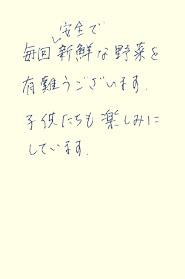 安全で
毎回新鮮な野菜を
有難うございます.
子供たちも楽しみに
しています.